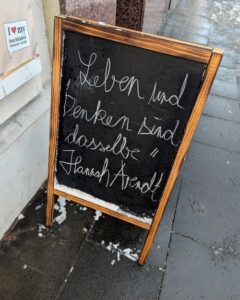 I ♥ my
Leben und
„Denken sind
dasselbe"
Hannah Arendt